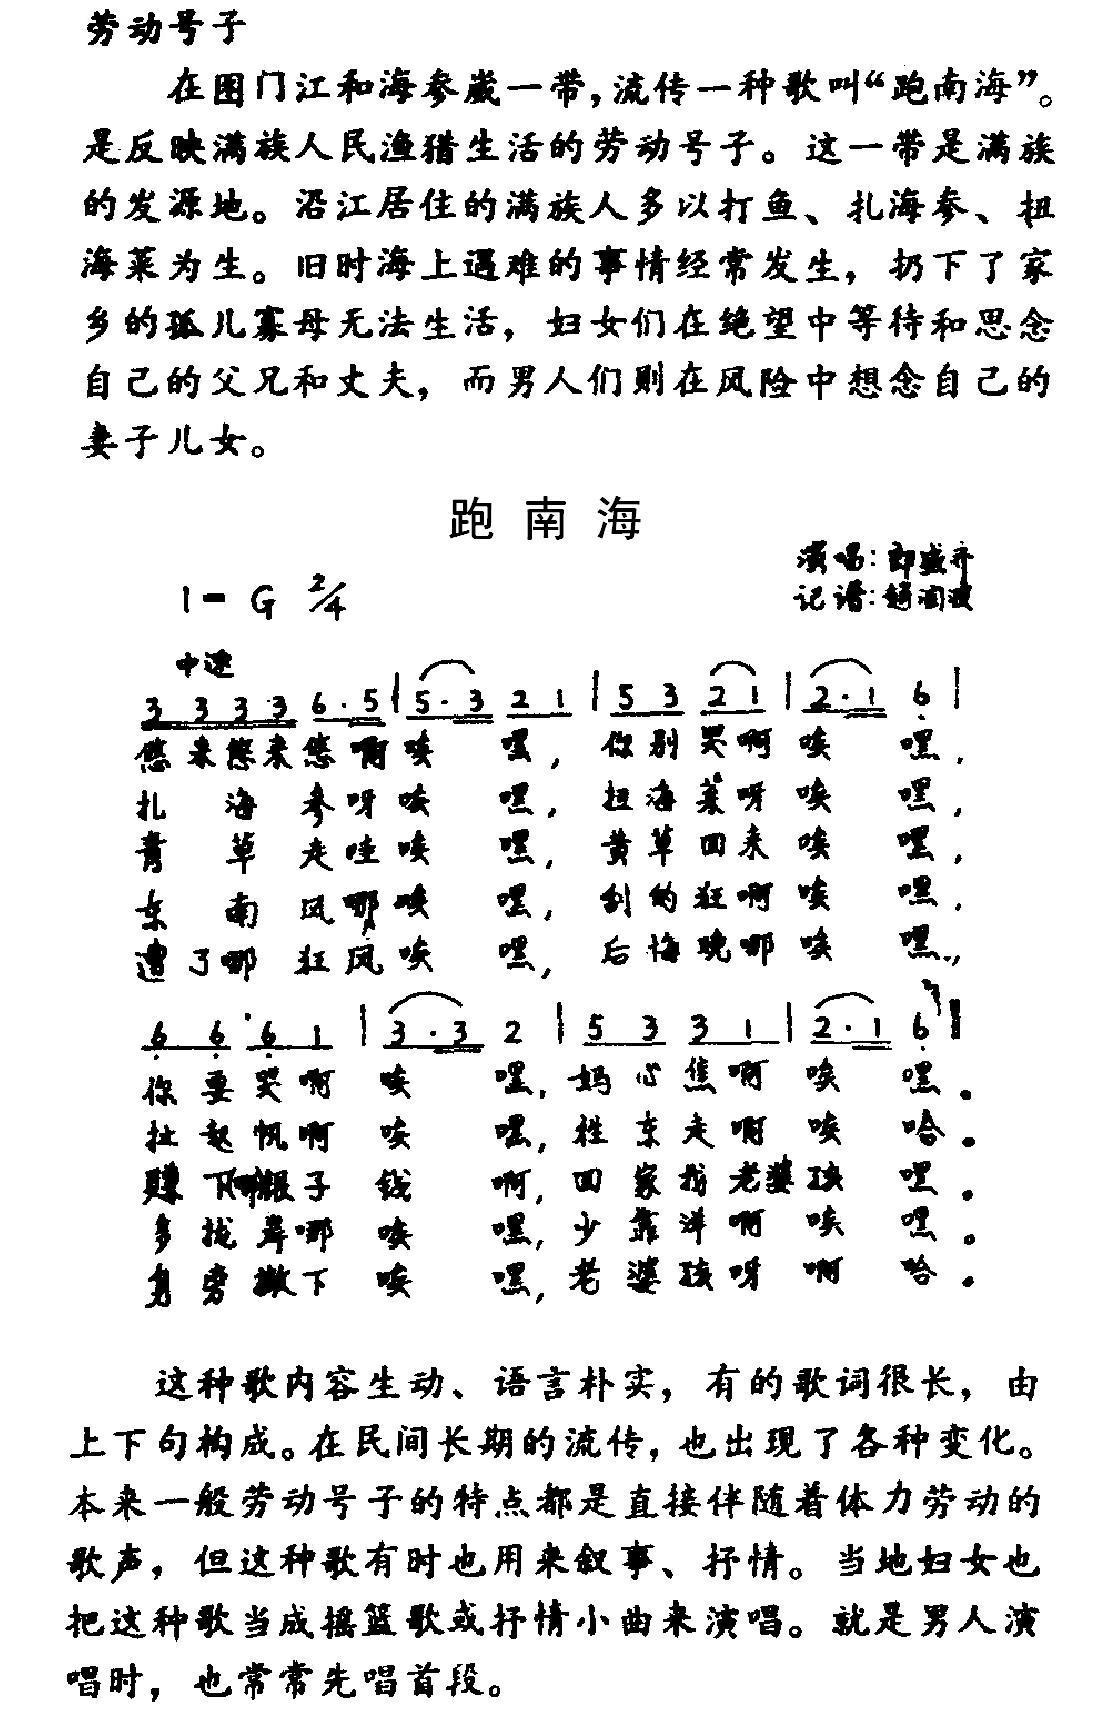 劳动号子
在图门江和海参崴一带，流传一种歌叫“跑南海”。
是反映满族人民渔猎生活的劳动号子。这一带是满族
的发源地。沿江居住的满族人多以打鱼、扎海参、扭
海菜为生。旧时海上遇难的事情经常发生，扔下了家
乡的孤儿寡母无法生活，妇女们在绝望中等待和思念
自己的父兄和丈夫，而男人们则在风险中想念自己的
妻子儿女。
跑南海
演唱：郎盛齐
记谱：
1=G 2/4
中速
3 3 3 3 6·5 | 5·3 2 1 | 5 3 2 1 | 2·1 6 |
悠来悠来悠啊唉 嘿，你别哭啊唉 嘿，
扎海参呀唉 嘿，扭海菜呀唉 嘿，
青草走哇唉 嘿，黄草回来唉 嘿，
东南风哪唉 嘿，刮的狂啊唉 嘿，
遭了哪狂风唉 嘿，后悔晚哪唉 嘿，
6 6 6 1 | 3·3 2 | 5 3 3 1 | 2·1 6 ‖
你要哭啊 唉 嘿，妈心焦啊 唉 嘿。
扯起帆啊 唉 嘿，往东走啊 唉 哈。
赚下银子钱 啊，回家找老婆孩 嘿。
多拢弄哪 唉 嘿，少靠洋啊 唉 嘿。
旁撇下 唉 嘿，老婆孩呀 啊 哈。
这种歌内容生动、语言朴实，有的歌词很长，由
上下句构成。在民间长期的流传，也出现了各种变化。
本来一般劳动号子的特点都是直接伴随着体力劳动的
歌声，但这种歌有时也用来叙事、抒情。当地妇女也
把这种歌当成摇篮歌或抒情小曲来演唱。就是男人演
唱时，也常常先唱首段。